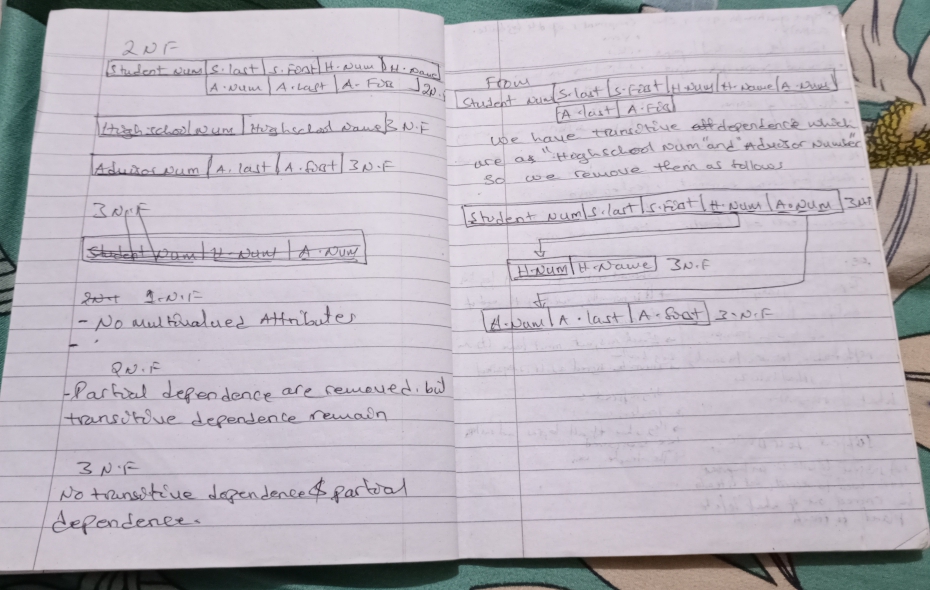 2NF
Student Num | S.last | S.First | H.Num | H.Name
A.Num | A.Last | A.Fir | 2N.
High school Num | Highschool Name | 3N.F
Advisor Num | A.last | A.first | 3N.F
3N.F
Student Num | H.Num | A.Num
1.N.F
- No multivalued Attributes
-
2N.F
- Partial dependence are removed. but
transitive dependence remain
3N.F
No transitive dependence & partial
dependence.
From
Student Num | S.last | S.First | H.Num | H.Name | A.Num
A.last | A.Firs
we have transitive dependence which
are as "Highschool num" and "Advisor Number"
So we remove them as follows
Student Num | S.last | S.First | H.Num | A.Num | 3N.F
H.Num | H.Name 3N.F
A.Num | A.last | A.first 3.N.F